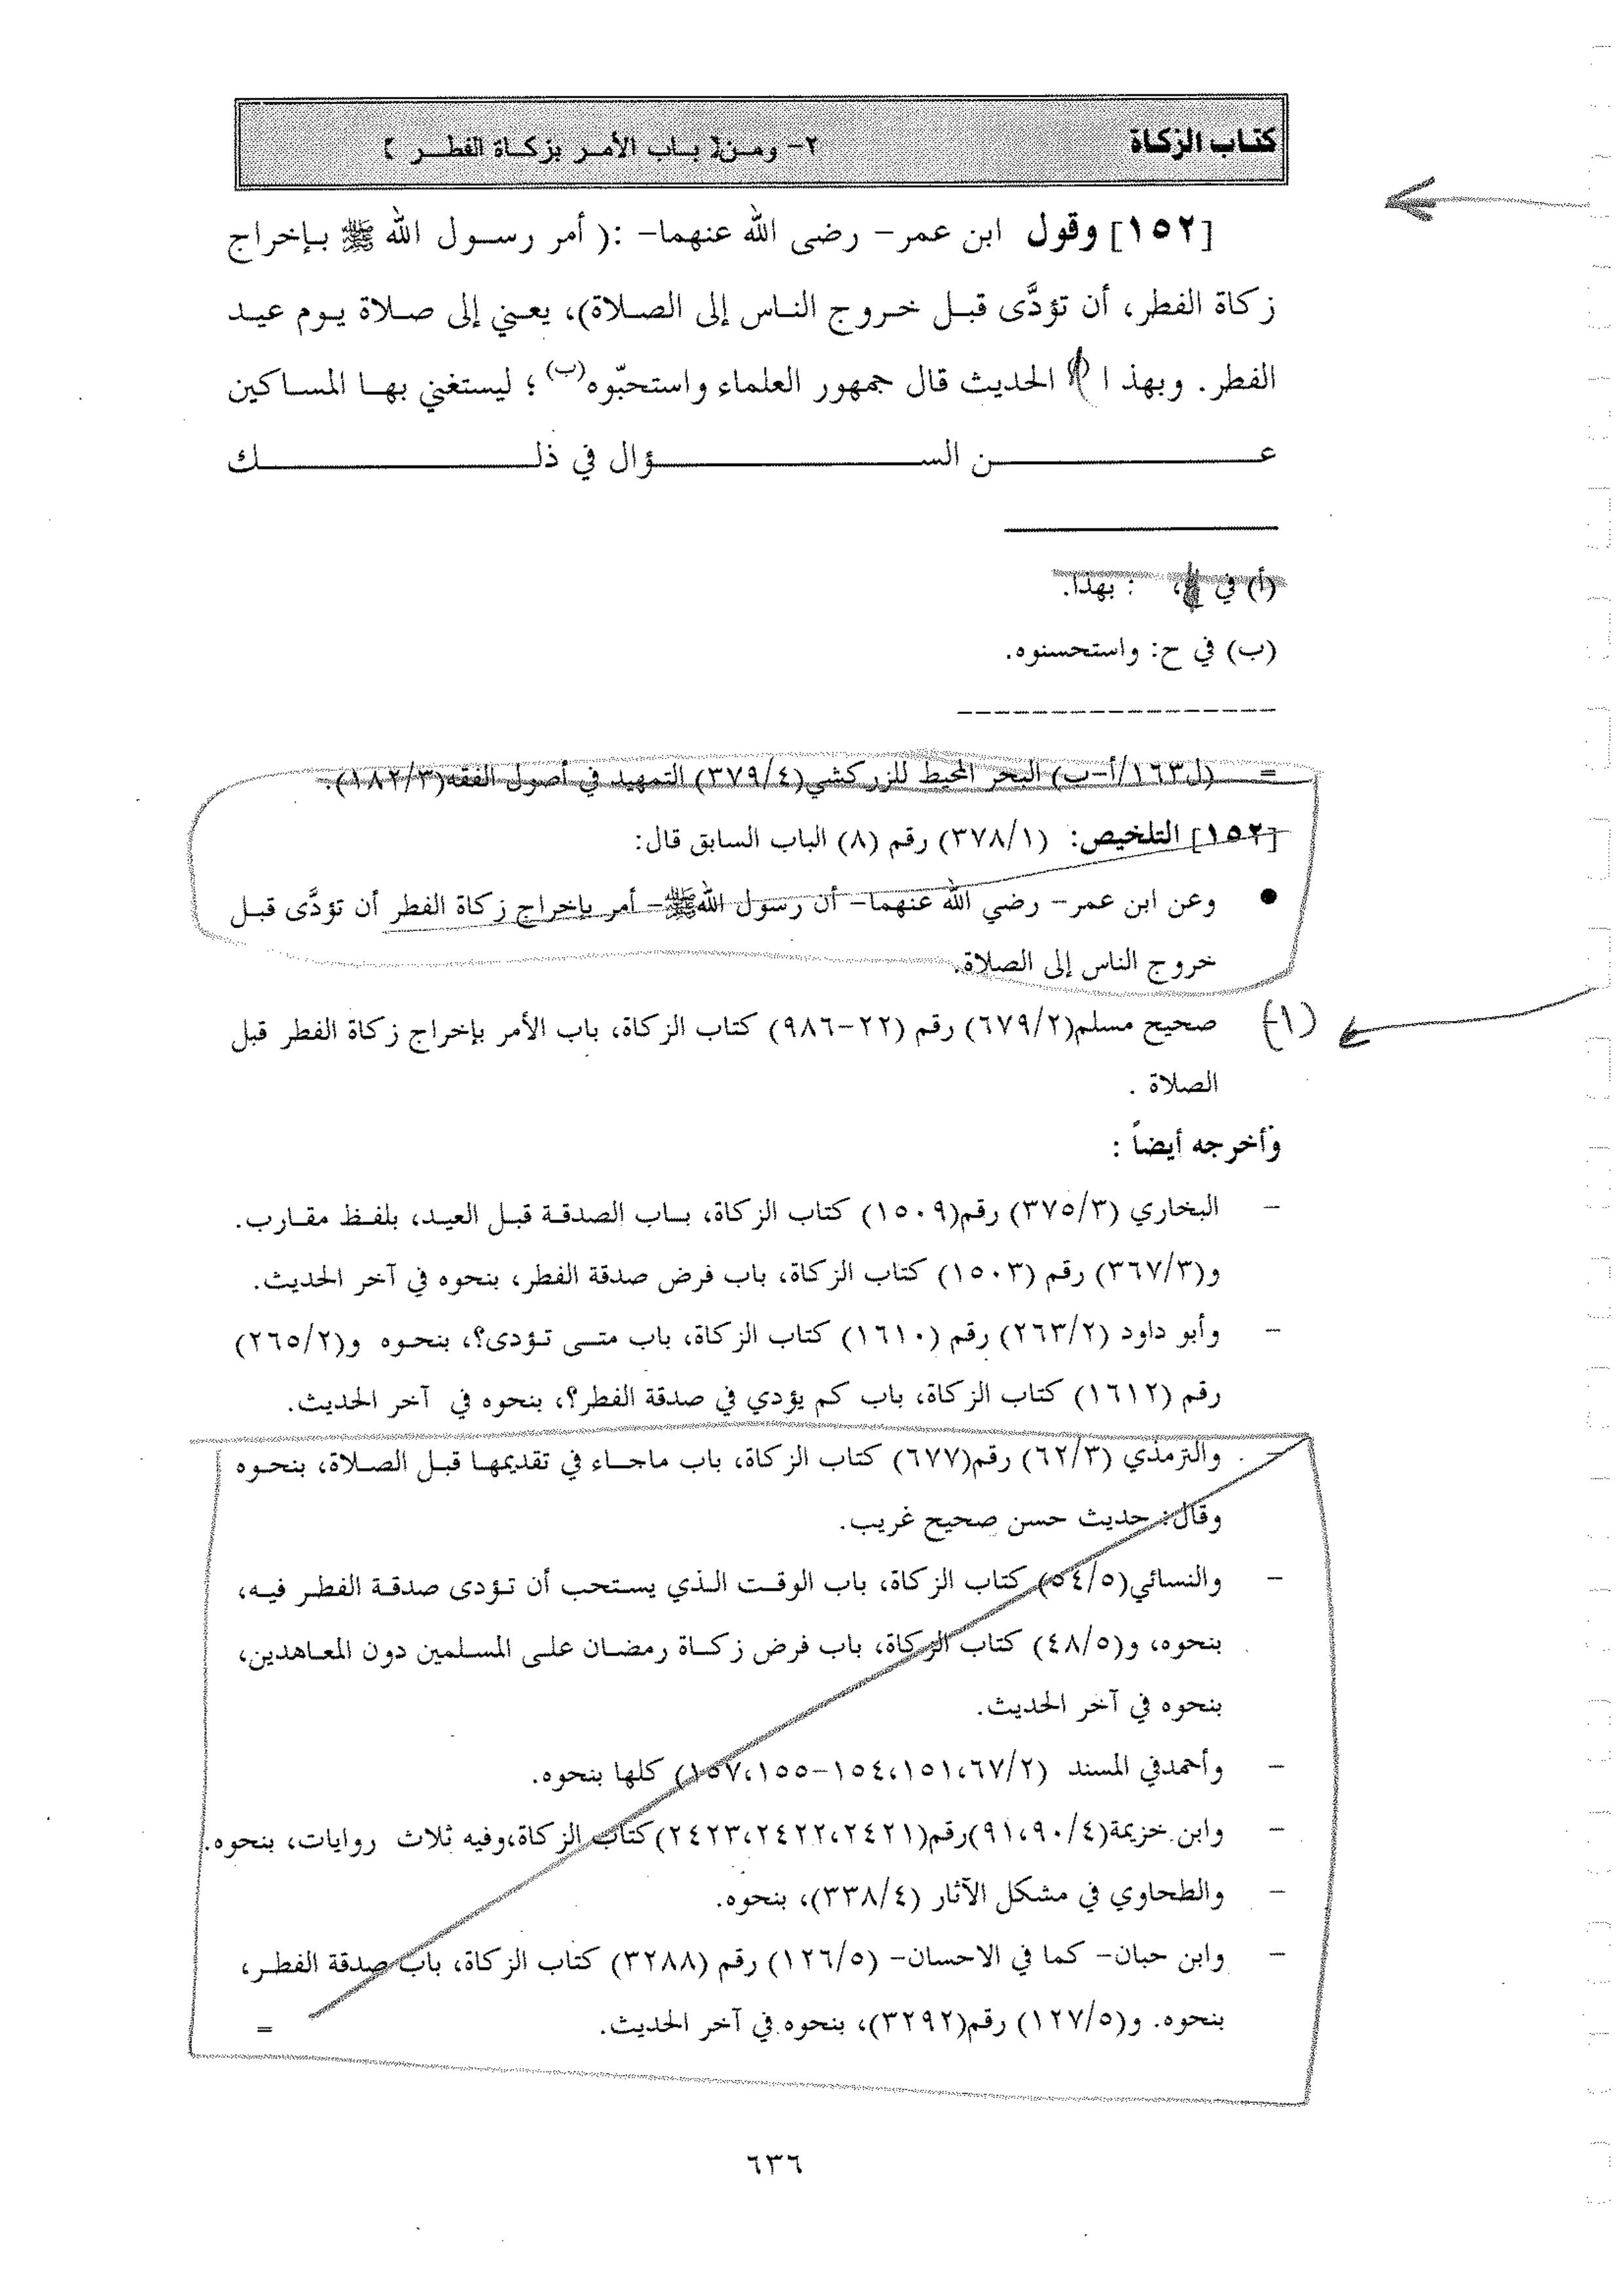 كتاب الزكاة ٢- ومن [ باب الأمر بزكاة الفطر ]
[١٥٢] وقول ابن عمر- رضى الله عنهما- :( أمر رسول الله ﷺ بإخراج
زكاة الفطر، أن تؤدَّى قبل خروج الناس إلى الصلاة)، يعني إلى صلاة يوم عيد
الفطر. وبهذا الحديث قال جمهور العلماء واستحبّوه(ب) ؛ ليستغني بها المساكين
عن السؤال في ذلك
(أ) في : بهذا.
(ب) في ح: واستحسنوه.
= (ل١٦٣/أ-ب) البحر المحيط للزركشي(٣٧٩/٤) التمهيد في أصول الفقه(١٨٢/٣).
[١٥٢] التلخيص: (٣٧٨/١) رقم (٨) الباب السابق قال:
● وعن ابن عمر- رضي الله عنهما- أن رسول اللهﷺ- أمر بإخراج زكاة الفطر أن تؤدَّى قبل
خروج الناس إلى الصلاة.
(١- صحيح مسلم(٦٧٩/٢) رقم (٢٢-٩٨٦) كتاب الزكاة، باب الأمر بإخراج زكاة الفطر قبل
الصلاة .
وأخرجه أيضاً :
- البخاري (٣٧٥/٣) رقم(١٥٠٩) كتاب الزكاة، باب الصدقة قبل العيد، بلفظ مقارب.
و(٣٦٧/٣) رقم (١٥٠٣) كتاب الزكاة، باب فرض صدقة الفطر، بنحوه في آخر الحديث.
- وأبو داود (٢٦٣/٢) رقم (١٦١٠) كتاب الزكاة، باب متى تؤدى؟، بنحوه و(٢٦٥/٢)
رقم (١٦١٢) كتاب الزكاة، باب كم يؤدي في صدقة الفطر؟، بنحوه في آخر الحديث.
- والترمذي (٦٢/٣) رقم(٦٧٧) كتاب الزكاة، باب ماجاء في تقديمها قبل الصلاة، بنحوه
وقال: حديث حسن صحيح غريب.
- والنسائي(٥٤/٥) كتاب الزكاة، باب الوقت الذي يستحب أن تؤدى صدقة الفطر فيه،
بنحوه، و(٤٨/٥) كتاب الزكاة، باب فرض زكاة رمضان على المسلمين دون المعاهدين،
بنحوه في آخر الحديث.
- وأحمدفي المسند (٦٧/٢،١٥١،١٥٤-١٥٥،١٥٧) كلها بنحوه.
- وابن خزيمة(٩٠/٤،٩١)رقم(٢٤٢١،٢٤٢٢،٢٤٢٣)كتاب الزكاة،وفيه ثلاث روايات، بنحوه.
- والطحاوي في مشكل الآثار (٣٣٨/٤)، بنحوه.
- وابن حبان- كما في الاحسان- (١٢٦/٥) رقم (٣٢٨٨) كتاب الزكاة، باب صدقة الفطر،
بنحوه. و(١٢٧/٥) رقم(٣٢٩٢)، بنحوه في آخر الحديث. =
٦٣٦